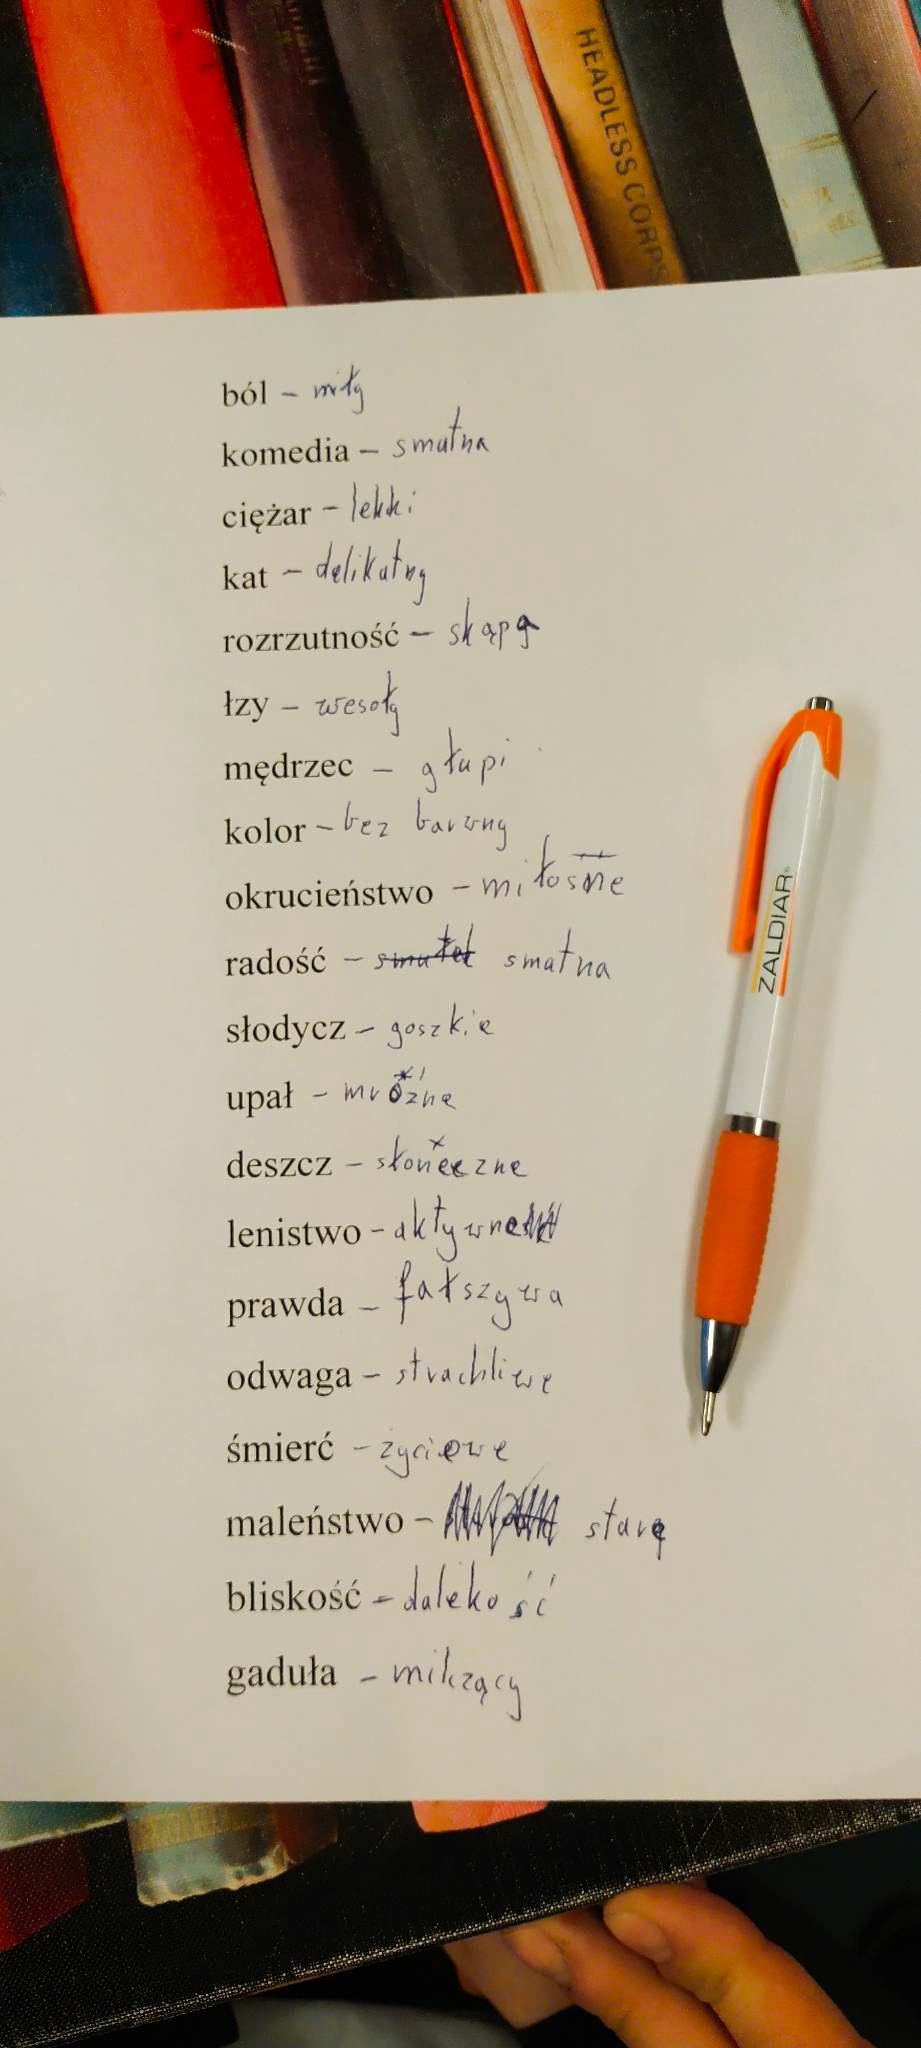 HEADLESS CORPS
ból – miły
komedia – smutna
ciężar – lekki
kat – delikatny
rozrzutność – skąpa
łzy – wesoły
mędrzec – głupi
kolor – bez barwny
okrucieństwo – miłosne
radość – smutek smutna
słodycz – goszkie
upał – mroźne
deszcz – słoneczne
lenistwo – aktywne
prawda – fałszywa
odwaga – strachliwe
śmierć – życiowe
maleństwo – stare
bliskość – dalekość
gaduła – milczący
ZALDIAR®